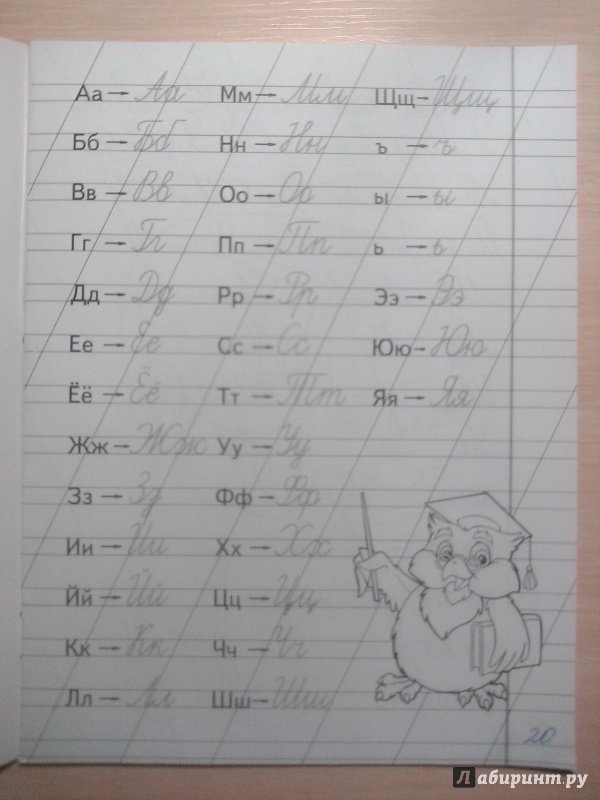 Аа → Аа
Бб → Бб
Вв → Вв
Гг → Гг
Дд → Дд
Ее → Ее
Ёё → Ёё
Жж → Жж
Зз → Зз
Ии → Ии
Йй → Йй
Кк → Кк
Лл → Лл
Мм → Мм
Нн → Нн
Оо → Оо
Пп → Пп
Рр → Рр
Сс → Сс
Тт → Тт
Уу → Уу
Фф → Фф
Хх → Хх
Цц → Цц
Чч → Чч
Шш → Шш
Щщ → Щщ
ъ → ъ
ы → ы
ь → ь
Ээ → Ээ
Юю → Юю
Яя → Яя
20
Лабиринт.ру